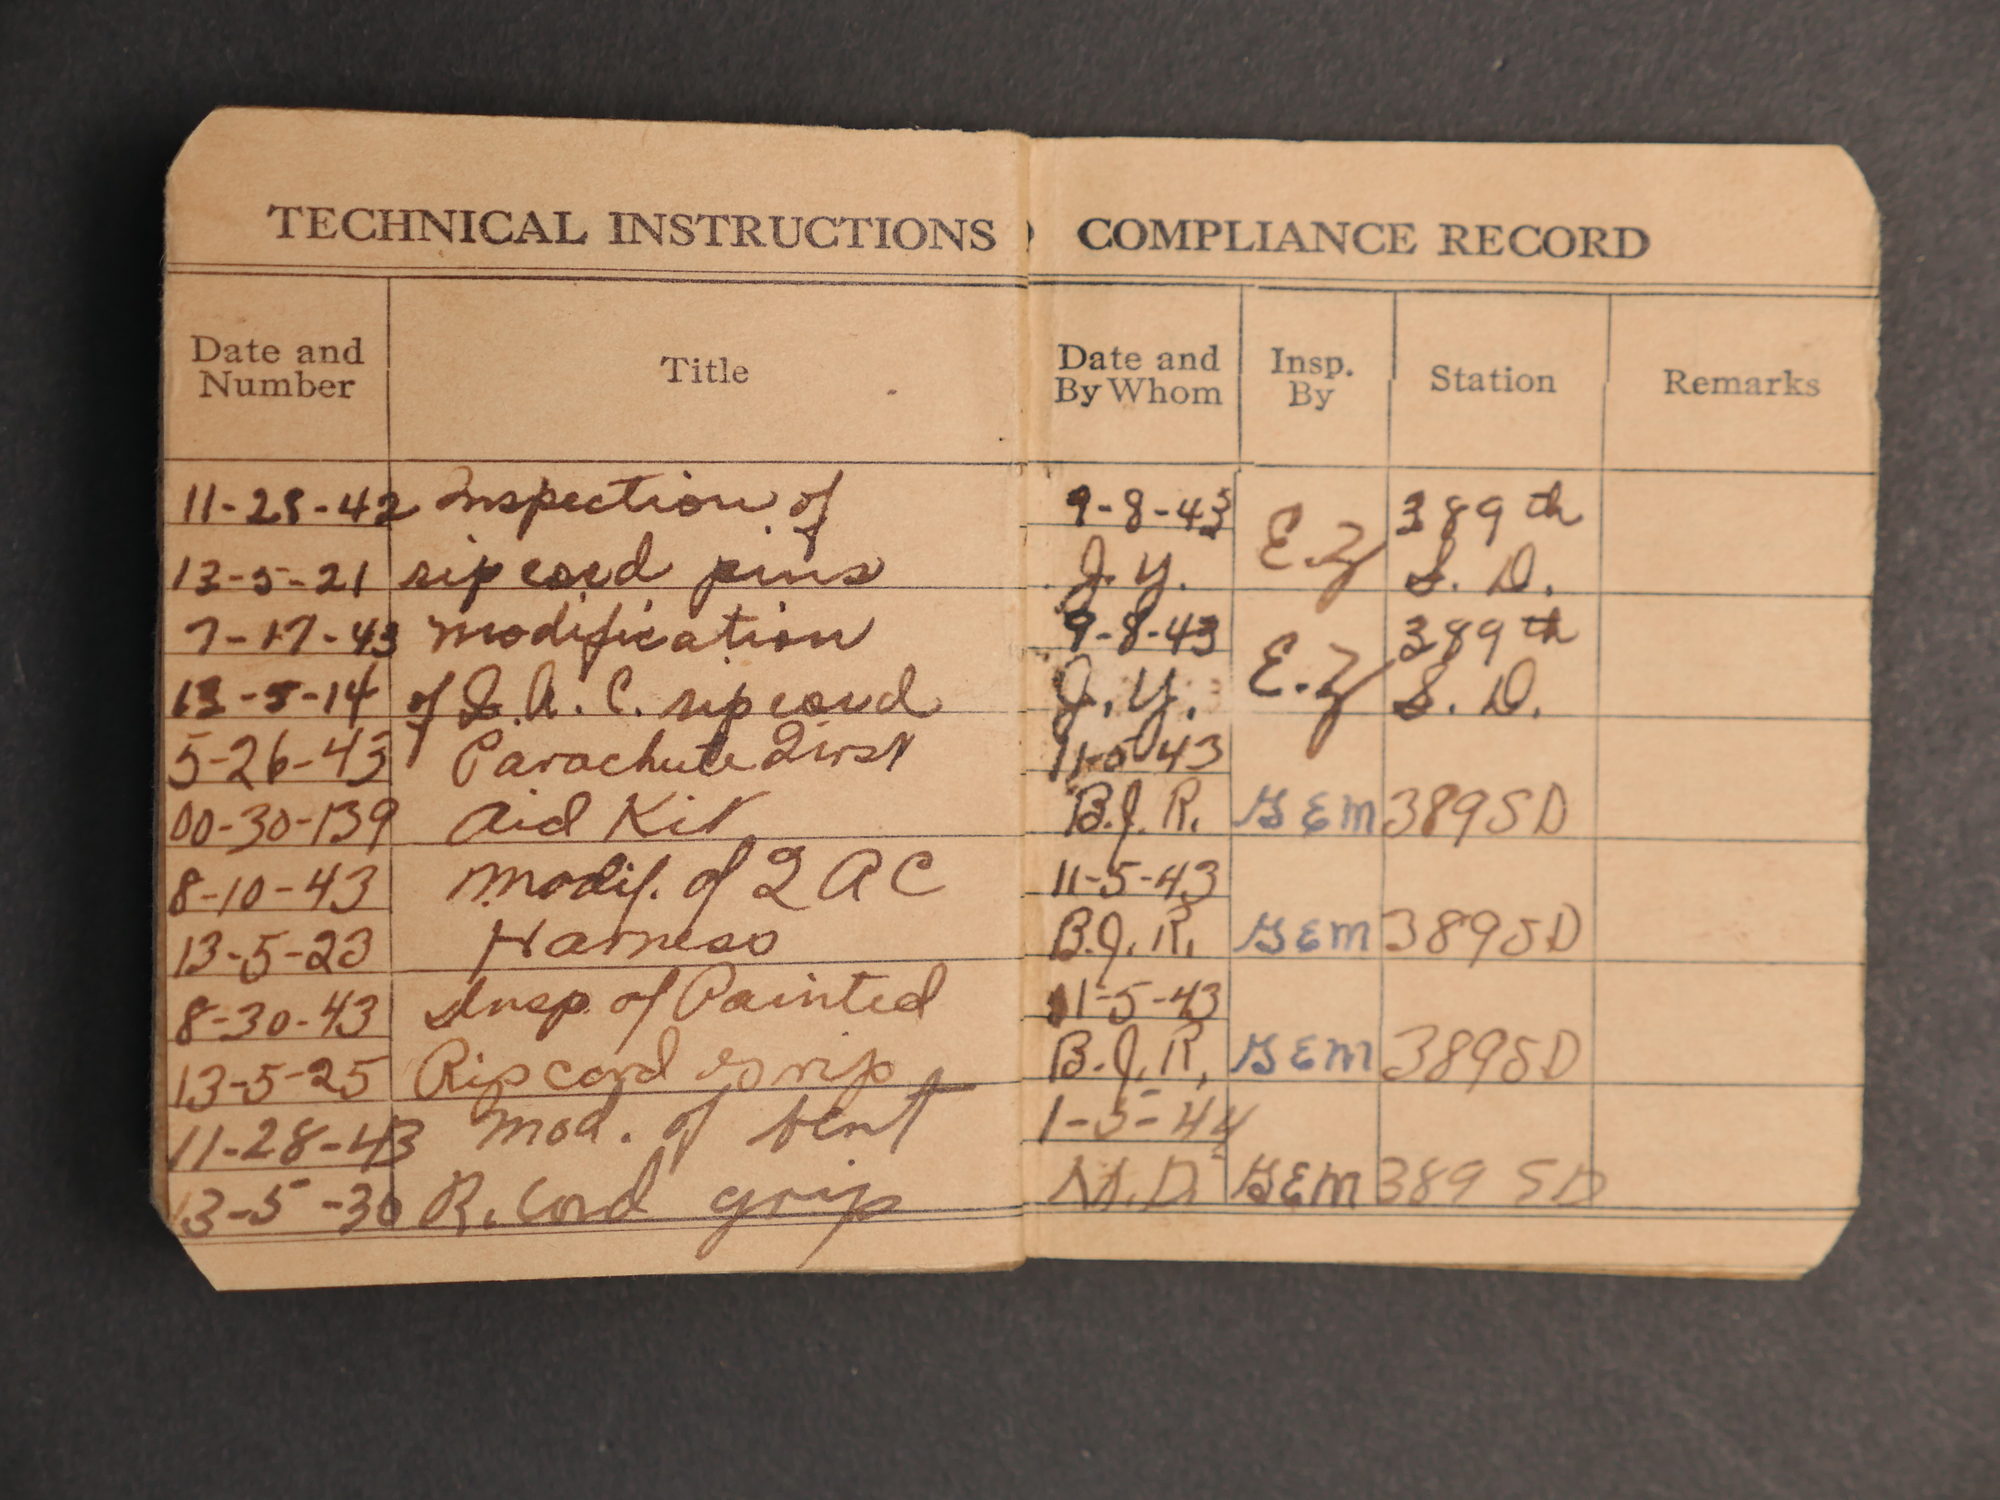 TECHNICAL INSTRUCTIONS COMPLIANCE RECORD
Date and Number Title Date and By Whom Insp. By Station Remarks
11-28-42 Inspection of 9-8-43 E.Z 389th
13-5-21 rip cord pins J.Y. S.D.
7-17-43 modification 9-8-43 E.Z 389th
13-5-14 of Q.A.C. rip cord J.Y. S.D.
5-26-43 Parachute First 11-5-43
00-30-139 Aid Kit B.J.R. GEM 389SD
8-10-43 Modif. of QAC 11-5-43
13-5-23 Harness B.J.R. GEM 389SD
8-30-43 Insp. of Painted 11-5-43
13-5-25 Rip cord Grip B.J.R. GEM 389SD
11-28-43 Mod. of bent 1-5-44
13-5-30 R. Cord grip M.D. GEM 389 SD